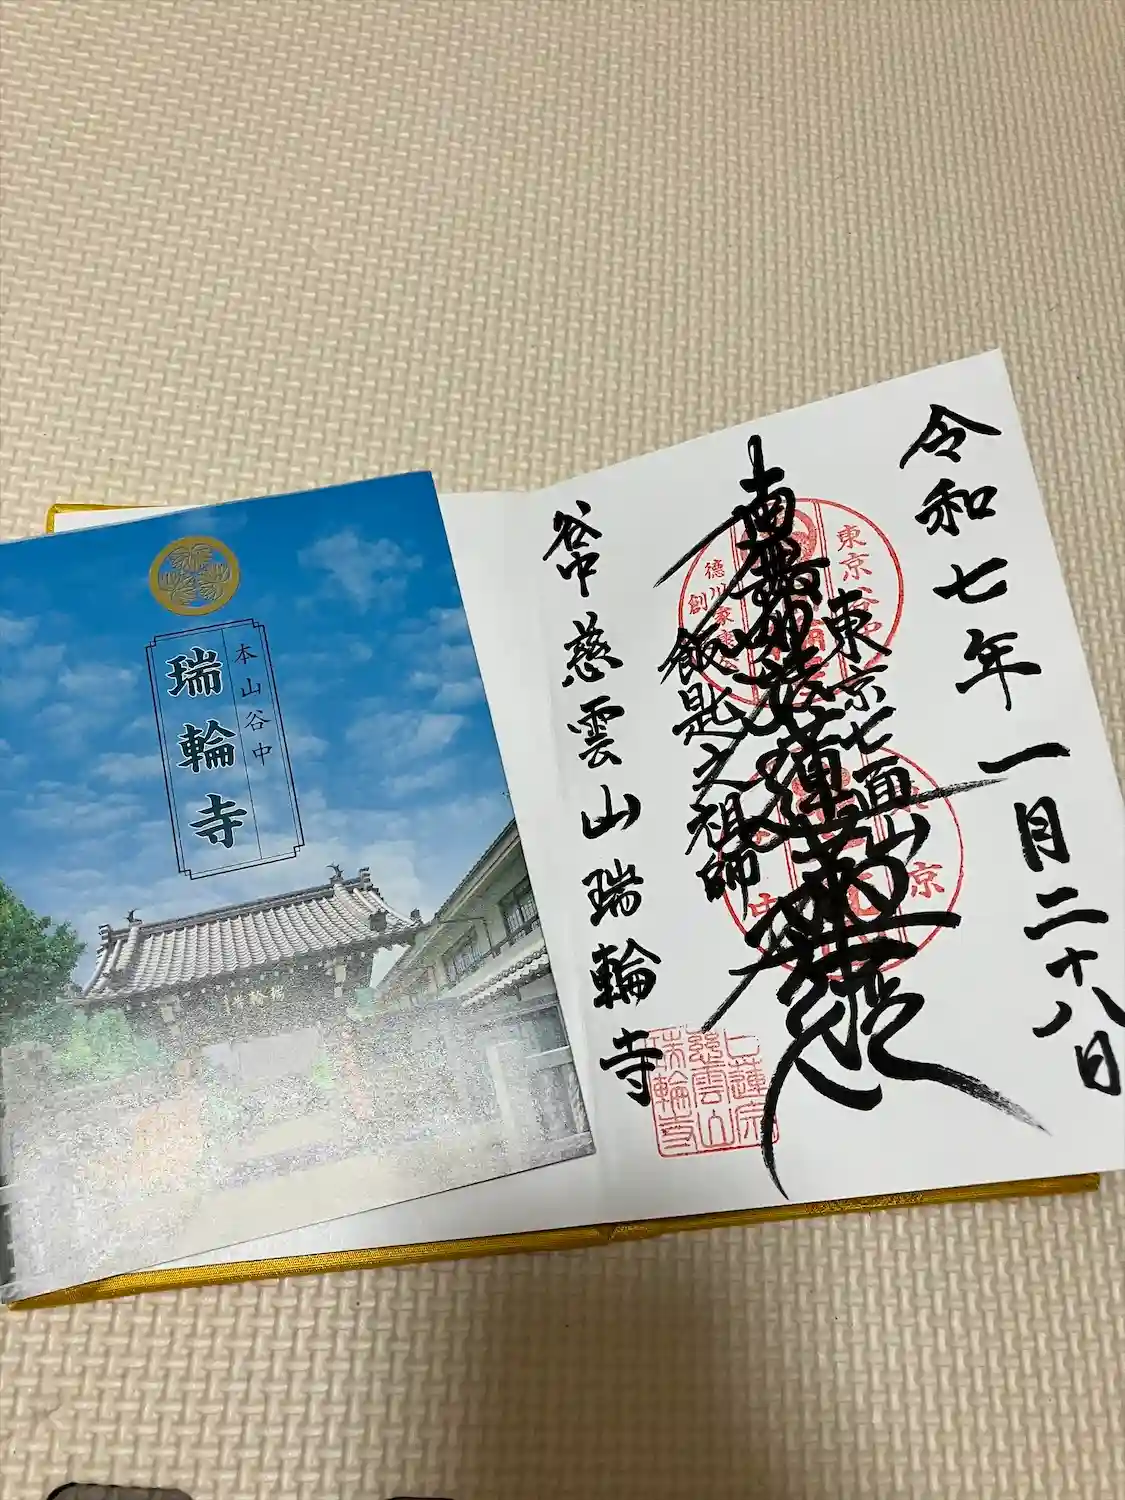 本山谷中
瑞輪寺
令和七年一月二十八日
東京七面山
南無妙法蓮華経
飯匙之祖師
谷中慈雲山瑞輪寺
東京谷中
徳川家康公
創
京
中
日蓮宗
慈雲山
瑞輪寺
瑞輪寺